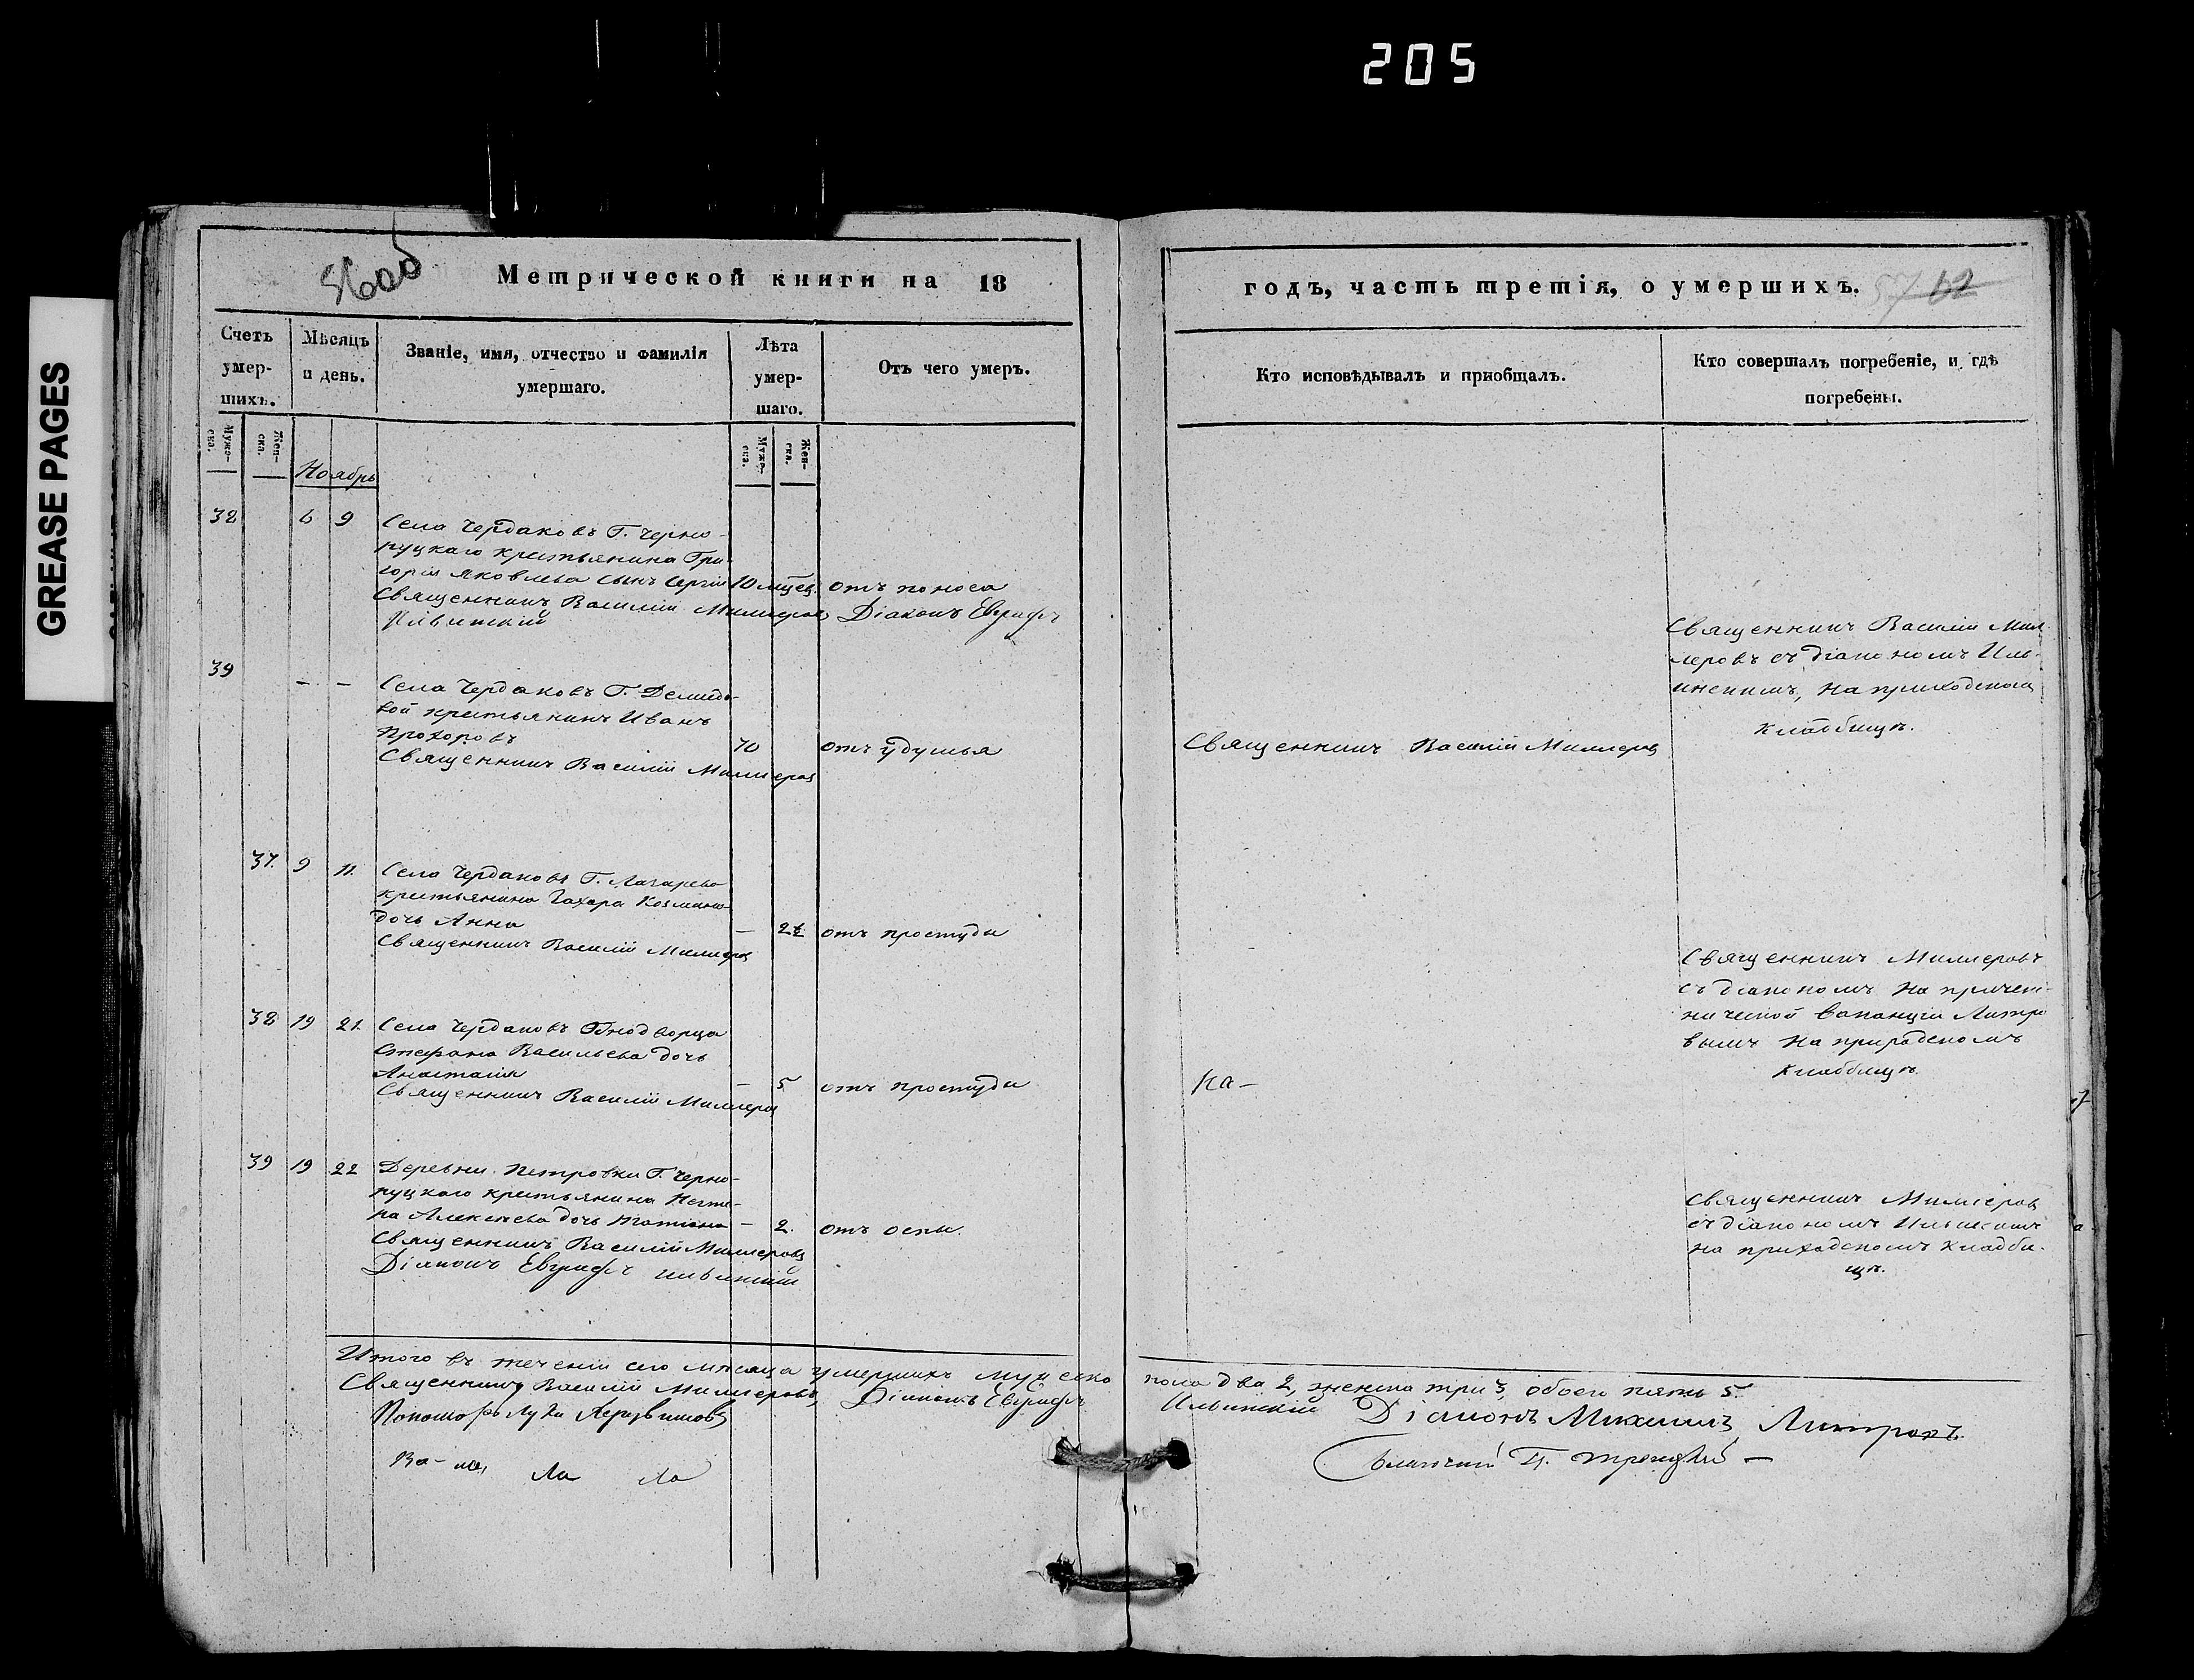 205
GREASE PAGES
Метрической книги на 18
годъ, часть третія, о умершихъ.
57 62
Счетъ умер-шихъ.
Мѣсяцъ и день.
Званіе, имя, отчество и фамилія умершаго.
Лѣта умер-шаго.
Отъ чего умеръ.
Кто исповѣдывалъ и пріобщалъ.
Кто совершалъ погребеніе, и гдѣ погребены.
Муже-ска.
Жен-ска.
Муже-ска.
Жен-ска.
Ноябрь
38 6 9 Села Чердаковъ Г. Черно-
руцкаго крестьянина Гри-
горія Яковлева сынъ Сергій 10 мцев. отъ поноса
Священникъ Василій Миллеровъ Діаконъ Евграфъ
Ильинскій
Священникъ Василій Мил-
леровъ съ діакономъ Иль-
инскимъ, на приходскомъ
кладбищѣ.
39 – – Села Чердаковъ Г. Демидо-
вой крестьянинъ Иванъ
Прохоровъ 70 отъ удушья
Священникъ Василій Миллеровъ
Священникъ Василій Миллеровъ
37. 9 11. Села Чердаковъ Г. Лазарева
крестьянина Захара Козмина
дочь Анна – отъ простуды
Священникъ Василій Миллеровъ
Священникъ Миллеровъ
съ діакономъ на причет-
нической вакансіи
вымъ на приходскомъ
кладбищѣ.
38 19 21. Села Чердаковъ Однодворца
Стефана Васильева дочь
Анастасія – 5 отъ простуды
Священникъ Василій Миллеровъ
ка –
39 19 22 Деревни Петровки Г. Черно-
руцкаго крестьянина
на Алексѣева дочь Татіана – 2. отъ оспы.
Священникъ Василій Миллеровъ
Діаконъ Евграфъ Ильинскій
Священникъ Миллеровъ
съ діакономъ Ильинскимъ
на приходскомъ кладби-
щѣ.
Итого въ теченіи сего мѣсяца умершихъ мужеско
пола два 2, женска три 3, обоего пять 5.
Священникъ Василій Миллеровъ, Діаконъ Евграфъ
Ильинскій Діаконъ Михаилъ
Пономарь Лука